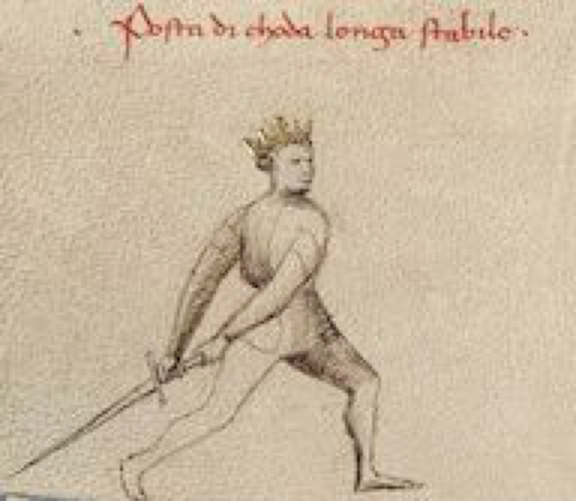 . Posta di choda longa stabile .